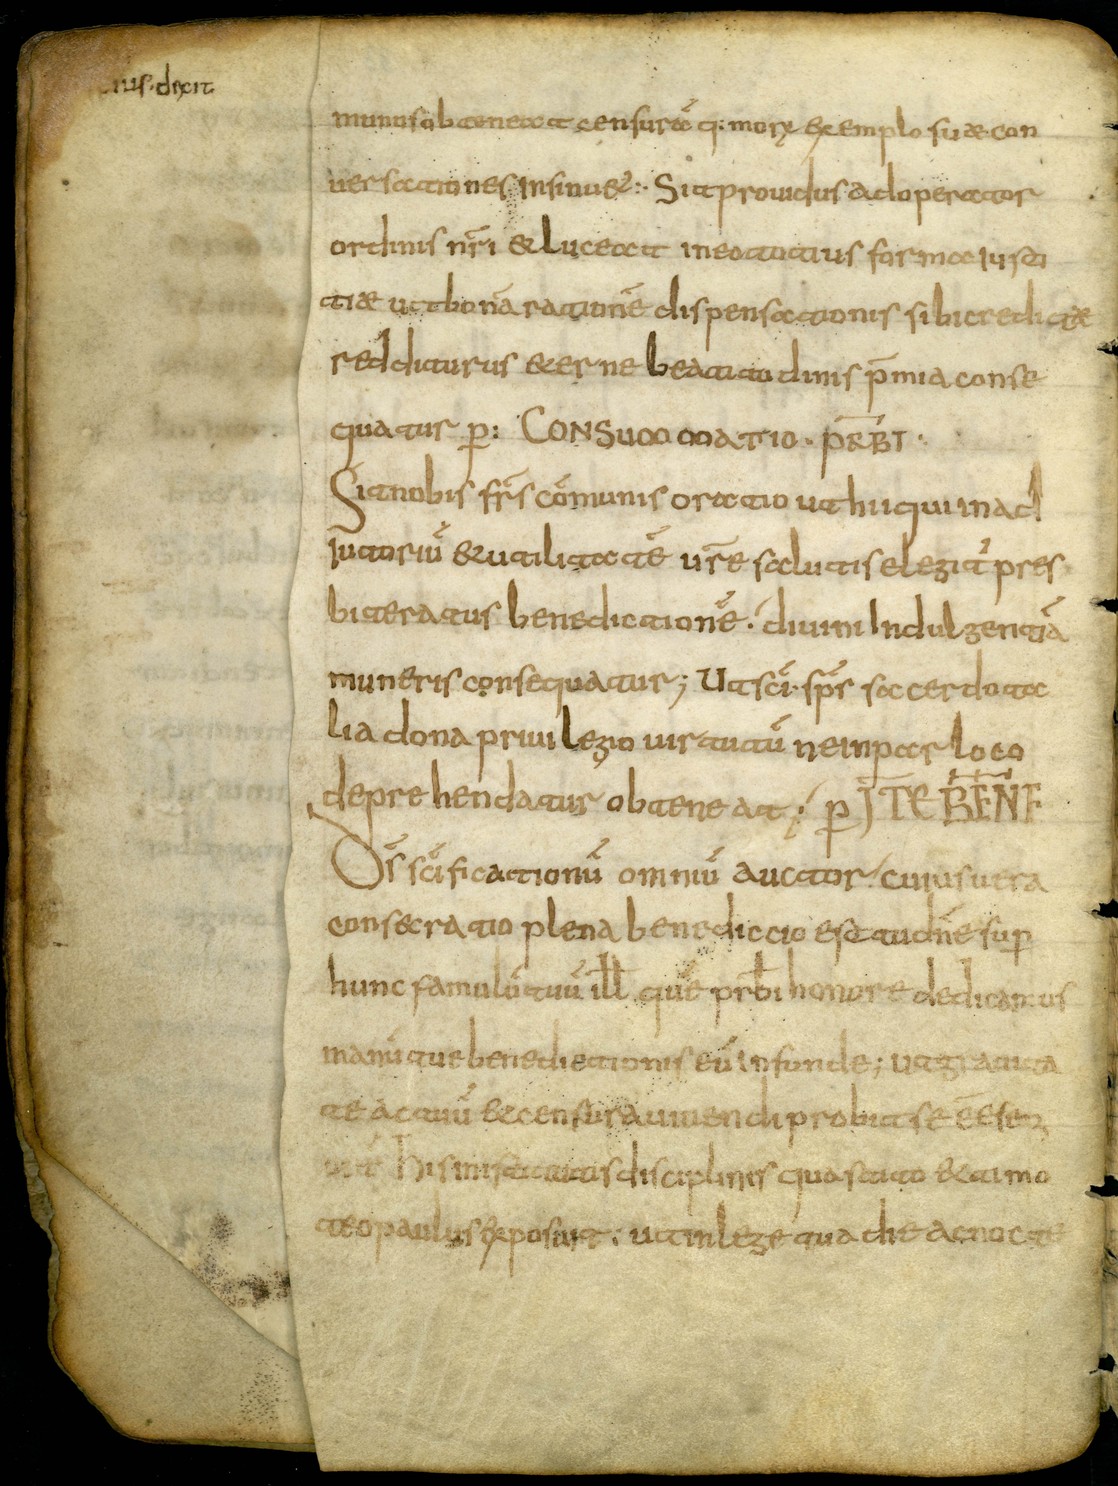 ius. dixit
munus obteneat censuraq: morū exemplo suae con
uersationes insinuet:· Sit prouidus adoperator
ordinis nr̄i & luceat in eo totius forma iusti
tiae ut bonā rationē dispensationis sibi creditae
redditurus & aeterne beatitodinis p̄mia conse
quatur p̄: CONSUMMATIO· PR̄BI·
Sit nobis fr̄s cōmunis oratio ut hii qui in ad
iutoriū & utilitatē ur̄e salutis elegit᾽ pres
biteratus benedictionē· diuini Indulgentiā
muneris consequatur; Ut sc̄i sp̄s sacerdota
lia dona priuilegio uirtutū ne inpar loco
deprehendatur obteneat; p̄ ITE B̄EN̄E
D̄s sc̄ificationū omniū auctor cuius uera
consecratio plena benediccio est tu dn̄e sup̄
hunc famulū tuū ill̄ quē prb̄i honore dedicamus
manū tue benedictionis eū infunde; ut grauita
te actuū & censura uiuendi probit se ēē sen
his institutis disciplinis quas tito & timo
teo paulus exposuit; ut in lege tua die ac nocte